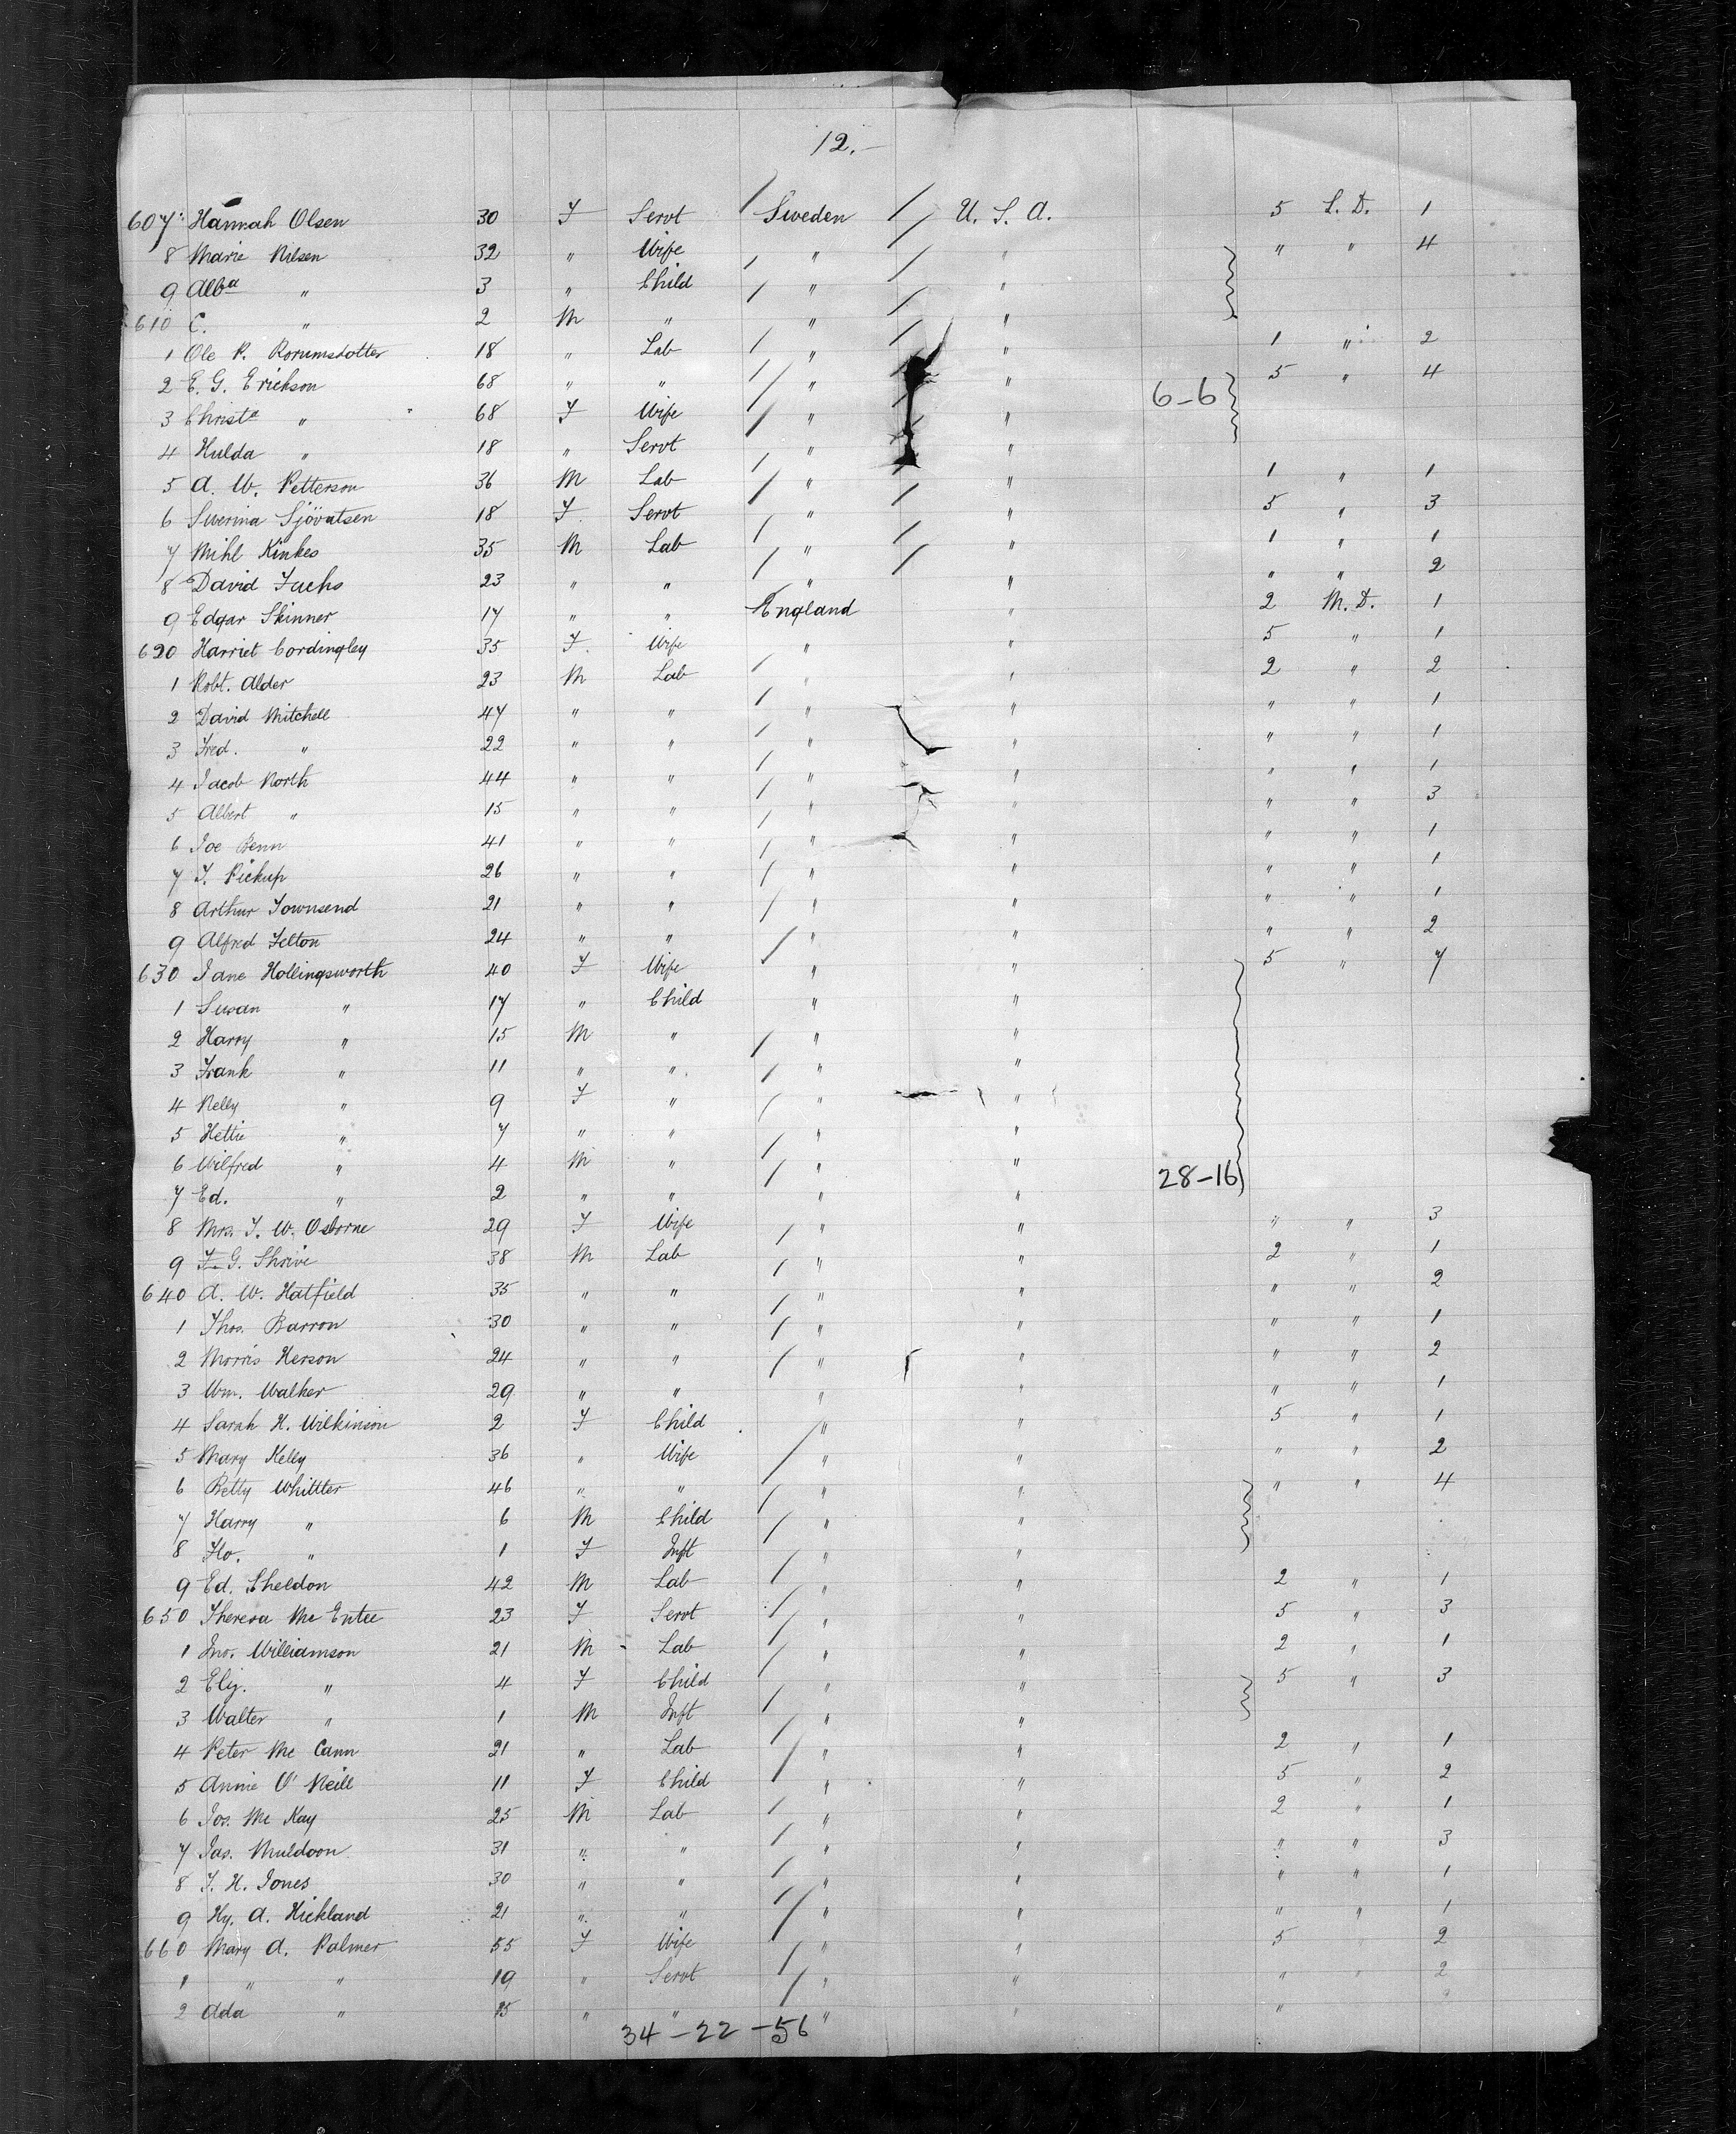 12.
607 Hannah Olsen 30 F Servt Sweden U. S. A. 5 L. D. 1
8 Marie Nilsen 32 " Wife " " " " 4
9 Alba " 3 " Child " "
610 C. " 2 M " " "
1 Ole P. Rorumsdotter 18 " Lab " " 1 " 2
2 E. G. Erickson 68 " " " " 5 " 4
3 Christa " 68 F Wife " " 6-6
4 Hulda " 18 " Servt " "
5 A. W. Petterson 36 M Lab " " 1 " 1
6 Swerina Sjövatsen 18 F. Servt " " 5 " 3
7 Mihl Kinkes 35 M Lab " " 1 " 1
8 David Fuchs 23 " " " " " " 2
9 Edgar Skinner 17 " " England " 2 M. D. 1
620 Harriet Cordingley 35 F. Wife " " 5 " 1
1 Robt. Alder 23 M Lab " " 2 " 2
2 David Mitchell 47 " " " " " " 1
3 Fred. " 22 " " " " " " 1
4 Jacob North 44 " " " " " " 1
5 Albert " 15 " " " " " " 3
6 Joe Benn 41 " " " " " " 1
7 T. Pickup 26 " " " " " " 1
8 Arthur Townsend 21 " " " " " " 1
9 Alfred Felton 24 " " " " " " 2
630 Jane Hollingsworth 40 F Wife " " 5 " 7
1 Susan " 17 " Child " "
2 Harry " 15 M " " "
3 Frank " 11 " " " "
4 Nelly " 9 F " " "
5 Hettie " 7 " " " "
6 Wilfred " 4 M " " " 28-16
7 Ed. " 2 " " " "
8 Mrs. T. W. Osborne 29 F Wife " " " " 3
9 F. G. Shrive 38 M Lab " " 2 " 1
640 A. W. Hatfield 35 " " " " " " 2
1 Thos. Barron 30 " " " " " " 1
2 Morris Herson 24 " " " " " " 2
3 Wm. Walker 29 " " " " " " 1
4 Sarah H. Wilkinson 2 F Child " " 5 " 1
5 Mary Kelly 36 " Wife " " " " 2
6 Betty Whittter 46 " " " " " " 4
7 Harry " 6 M Child " "
8 Flo. " 1 F Inft " "
9 Ed. Sheldon 42 M Lab " " 2 " 1
650 Theresa Mc Entee 23 F Servt " " 5 " 3
1 Jno. Williamson 21 M Lab " " 2 " 1
2 Eliz. " 4 F Child " " 5 " 3
3 Walter " 1 M Inft " "
4 Peter Mc Cann 21 " Lab " " 2 " 1
5 Annie O' Neill 11 F Child " " 5 " 2
6 Jos. Mc Kay 25 M Lab " " 2 " 1
7 Jas. Muldoon 31 " " " " " " 3
8 T. H. Jones 30 " " " " " " 1
9 Hy. A. Hickland 21 " " " " " " 1
660 Mary A. Palmer 55 F Wife " " 5 " 2
1 " " 19 " Servt " " " " 2
2 Ada " 25 " " " " "
34-22-56